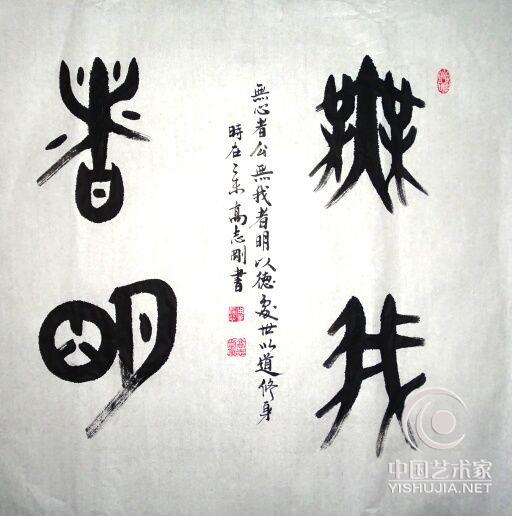 無我
無心者公無我者明以德處世以道修身
時在乙未高志剛書
者明
中国艺术家
YISHUJIA.NET